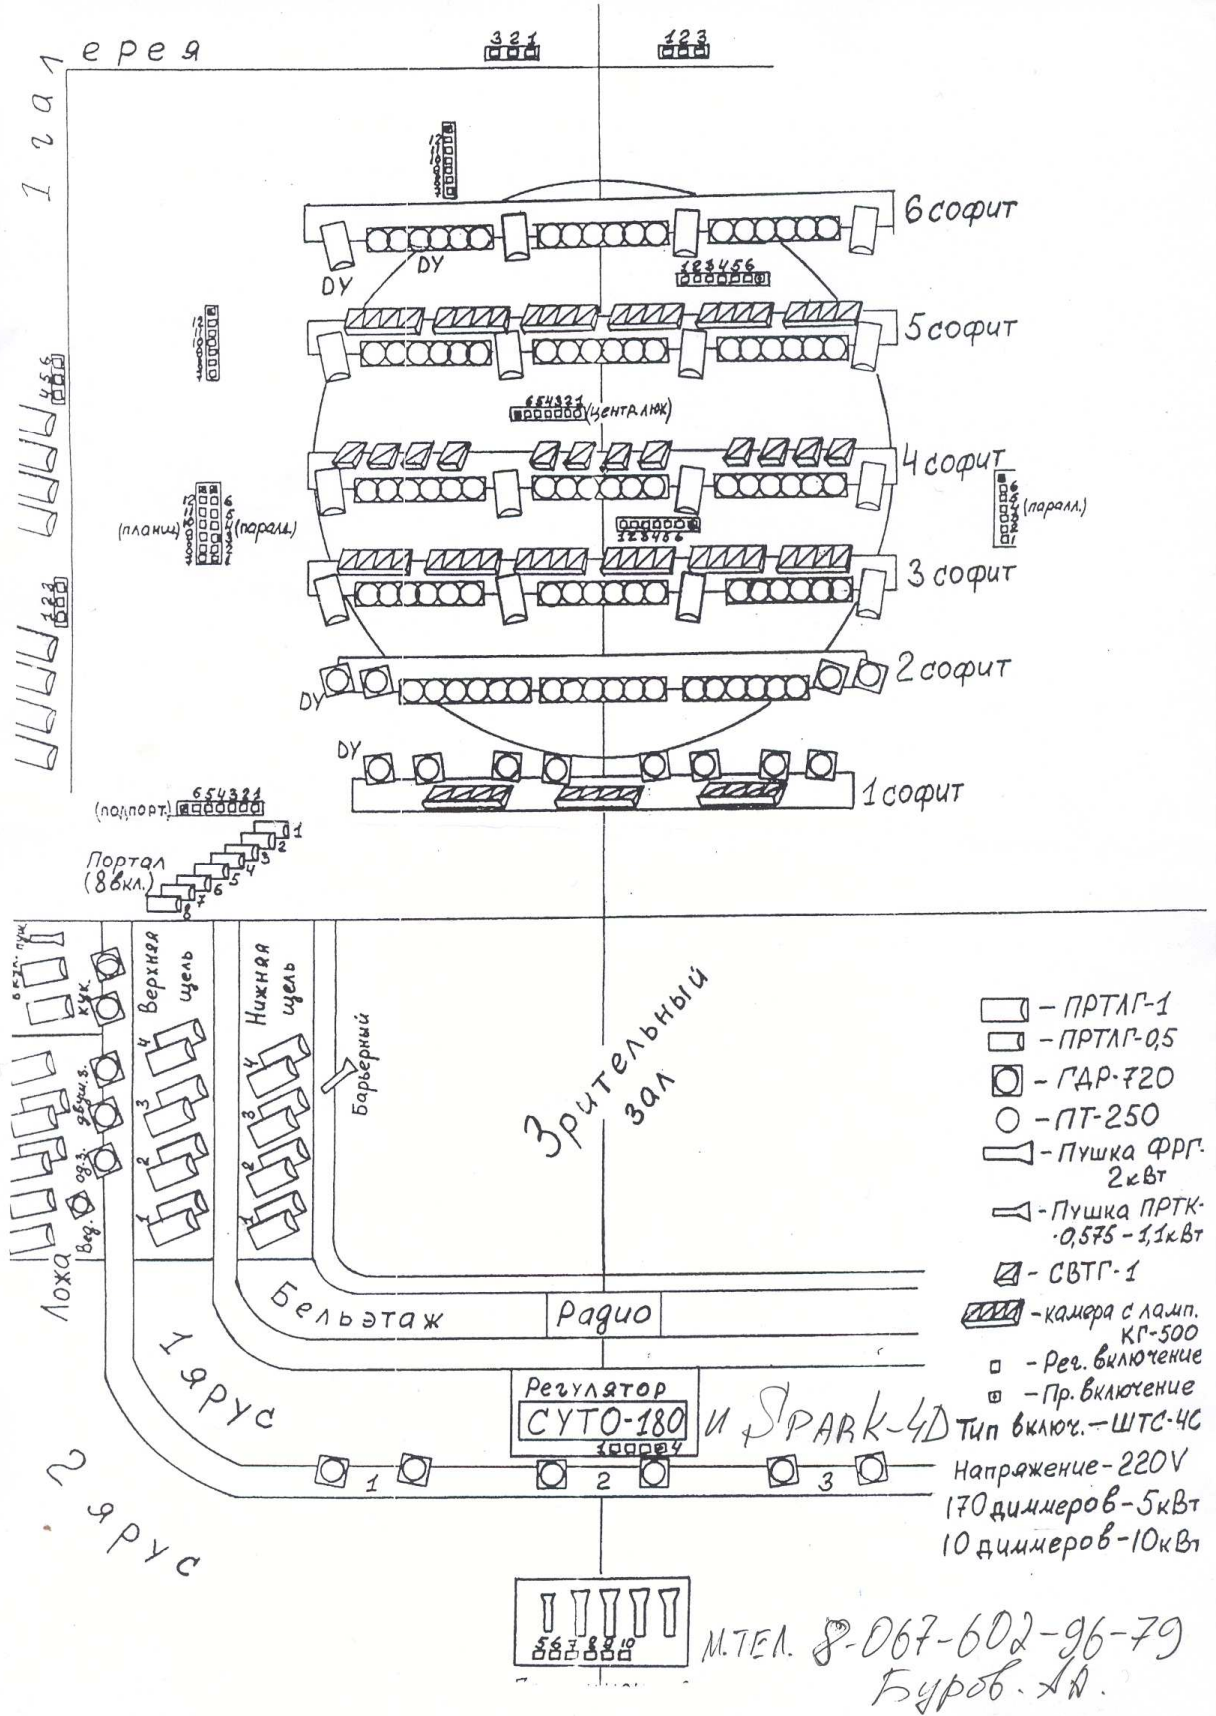 1 галерея
3 2 1
1 2 3
6 софит
DУ
DУ
1 2 3 4 5 6
5 софит
4 5 6
6 5 4 3 2 1
(централюк)
4 софит
(планш)
(паралл.)
(паралл.)
1 2 3 4 5 6
3 софит
1 2 3
2 софит
DУ
DУ
1 софит
(подпорт.)
6 5 4 3 2 1
Портал
(8 вкл.)
1
2
3
4
5
6
7
8
Верхняя
щель
4
3
2
1
Нижняя
щель
4
3
2
1
Барьерный
Зрительный
зал
кук.
двуш.з.
од.з.
Вед.
Ложа
Бельэтаж
Радио
1 ярус
2 ярус
Регулятор
СУТО-180
1 4
и SPARK-4D
1 2 3
5 6 7 8 9 10
- ПРТЛГ-1
- ПРТЛГ-0,5
- ГДР-720
- ПТ-250
- Пушка ФРГ-
2кВт
- Пушка ПРТК-
-0,575-1,1кВт
- СВТГ-1
- камера с ламп.
КГ-500
- Рег. включение
- Пр. включение
Тип включ. - ШТС-4С
Напряжение - 220V
170 диммеров - 5кВт
10 диммеров - 10кВт
М.ТЕЛ. 8-067-602-96-79
Буров. АА.